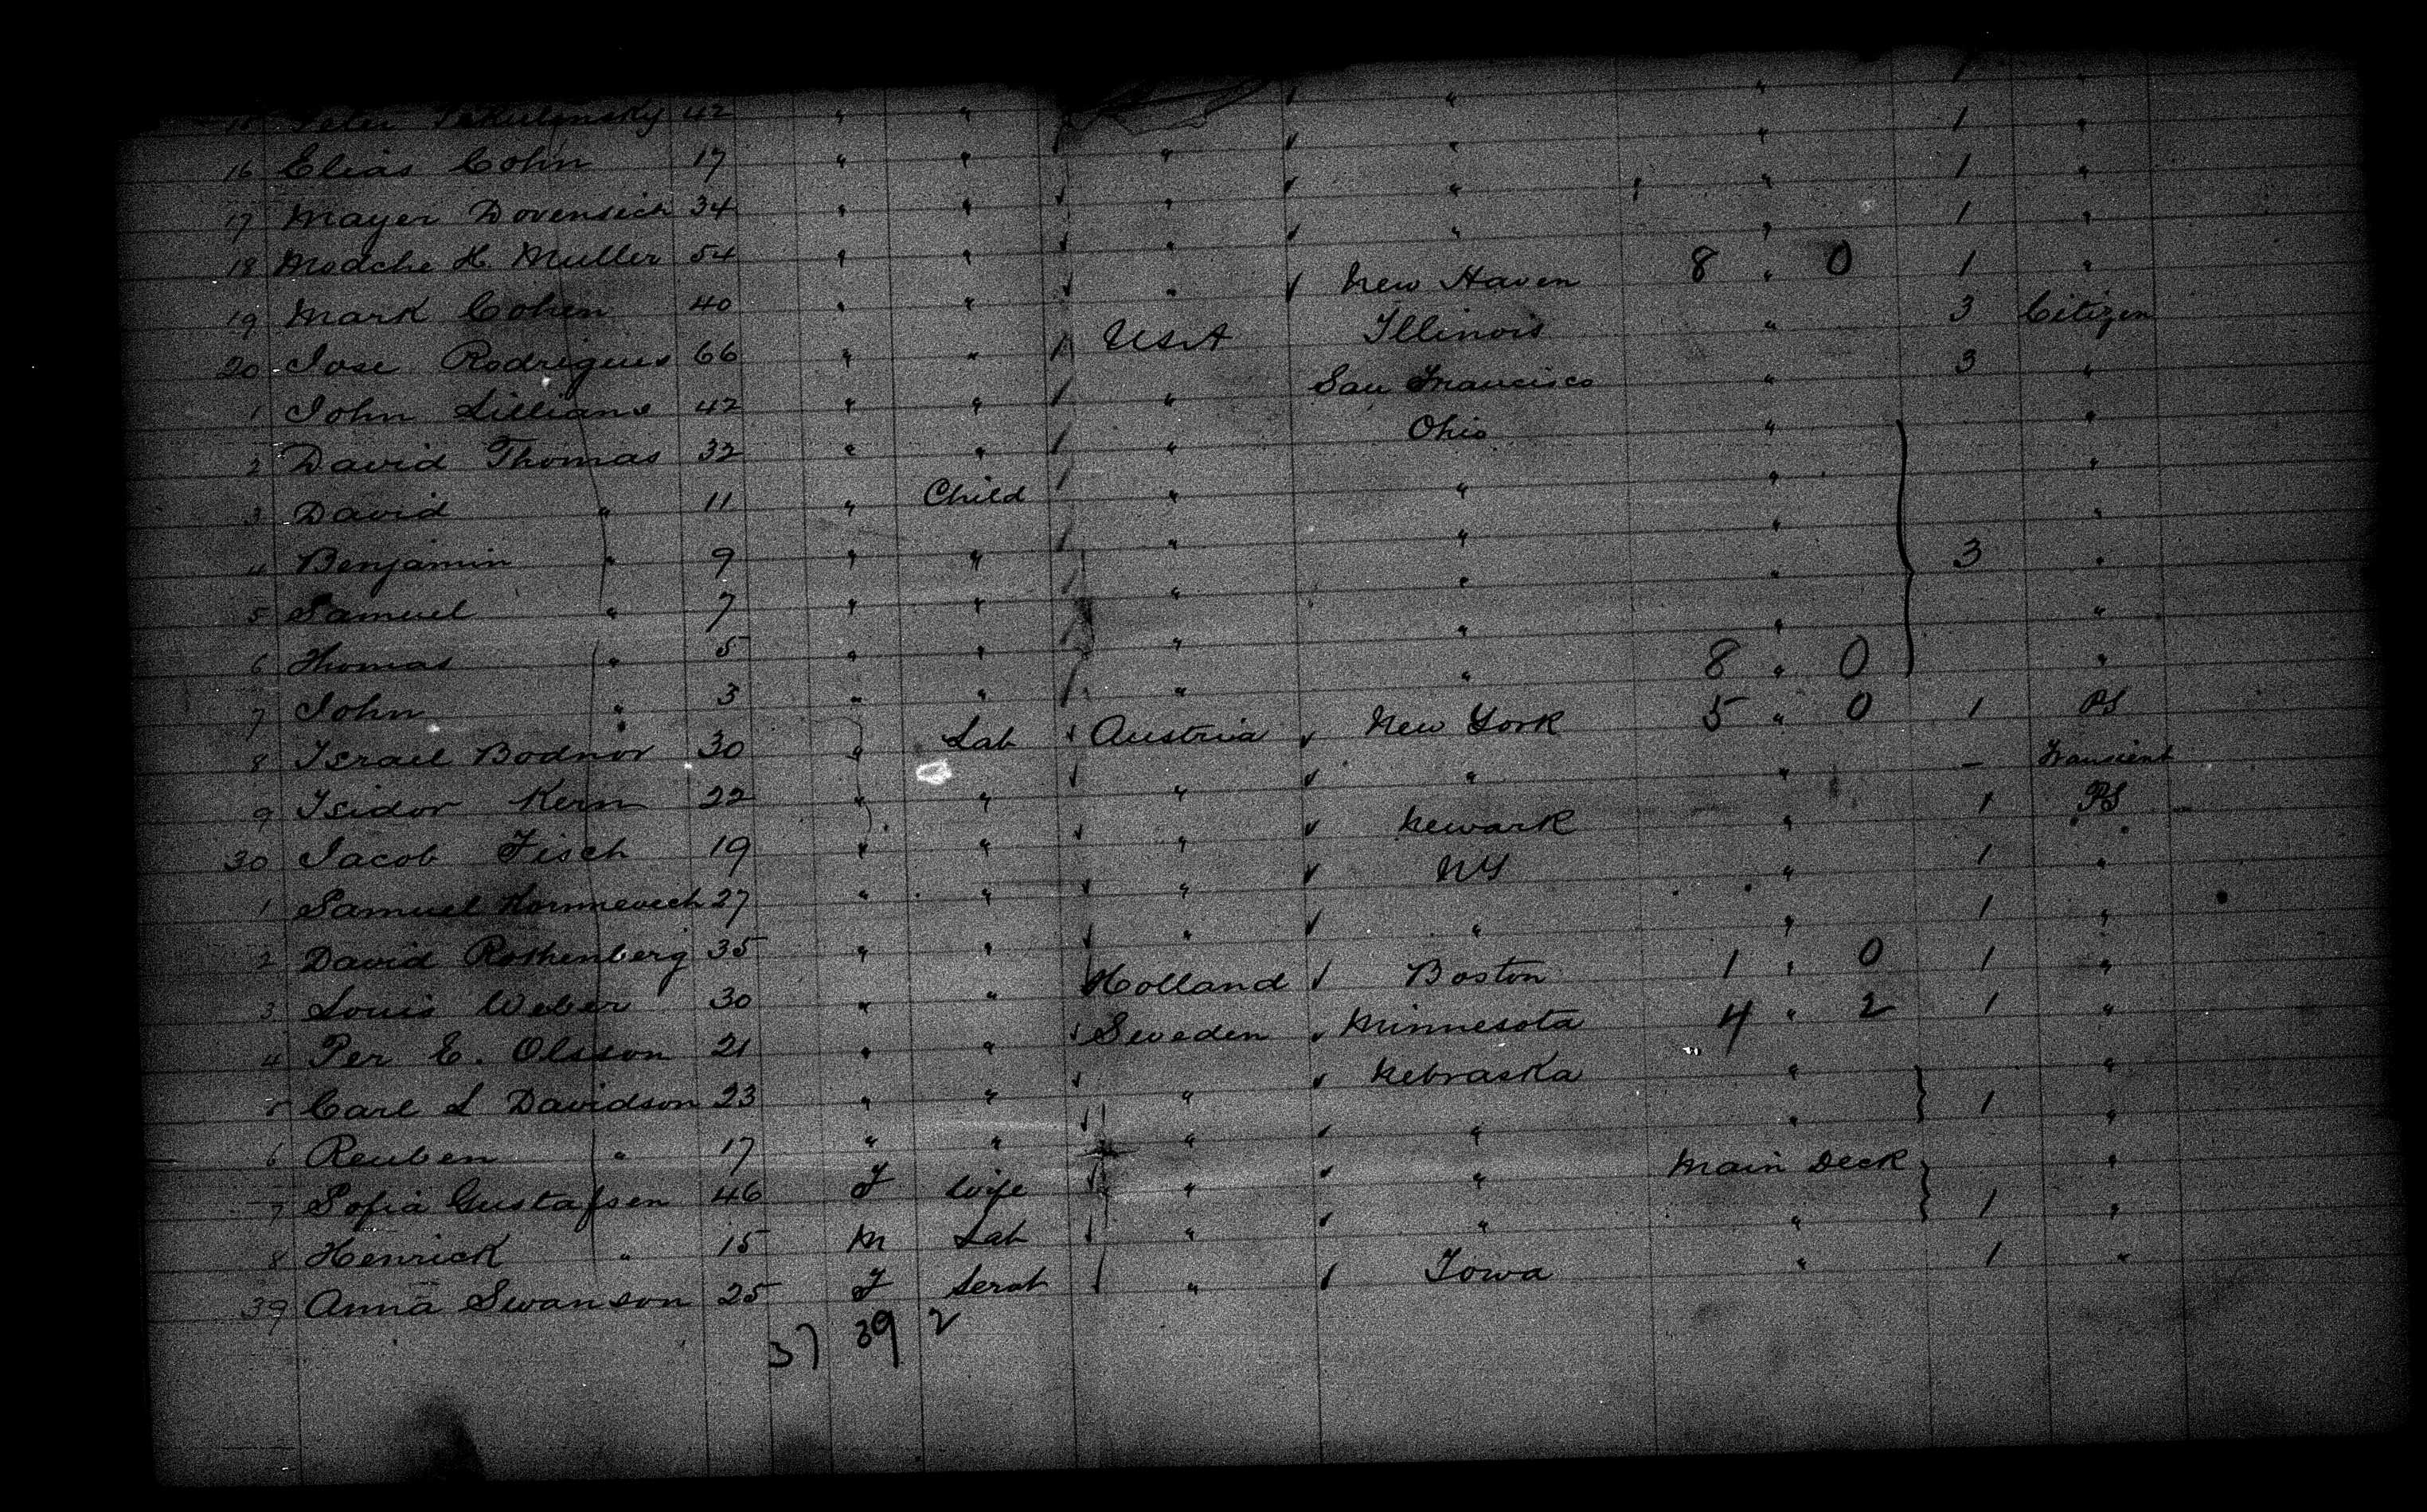 Peter 42 " " " " 1 "
16 Elias Cohn 17 " " " " " 1 "
17 Mayer Dovensich 34 " " " " " 1 "
18 Modche H. Muller 54 " " " " " 1 "
19 Mark Cohen 40 " " " New Haven 8 " 0 1 "
20 Jose Rodrigues 66 " " USA Illinois " 3 Citizen
1 John Lillians 42 " " " San Francisco " 3 "
2 David Thomas 32 " " " Ohio " "
3 David " 11 " Child " " " "
4 Benjamin " 9 " " " " " "
5 Samuel " 7 " " " " " 3 "
6 Thomas " 5 " " " " " "
7 John " 3 " " " " 8 " 0 "
8 Israel Bodnor 30 " Lab Austria New York 5 " 0 1 PS
9 Isidor Kern 22 " " " " " - Transient
30 Jacob Fisch 19 " " " Newark " 1 PS
1 Samuel 27 " " " NY " 1 "
2 David Rothenberg 35 " " " " " 1 "
3 Louis Weber 30 " " Holland Boston 1 " 0 1 "
4 Per E. Olsson 21 " " Sweden Minnesota 4 " 2 1 "
5 Carl L Davidson 23 " " " Nebraska " "
6 Reuben " 17 " " " " " 1 "
7 Sofia Gustafsen 46 F Wife " " Main Deck "
8 Henrick " 15 M Lab " " " 1 "
39 Anna Swanson 25 F Servt " Iowa " 1 "
37 39 2